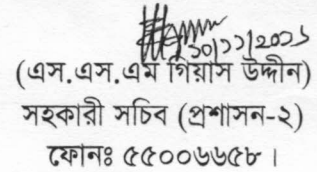 ৩০/১১/২০২১
(এস.এস.এম গিয়াস উদ্দীন)
সহকারী সচিব (প্রশাসন-২)
ফোনঃ ৫৫০০৬৬৫৮ ।